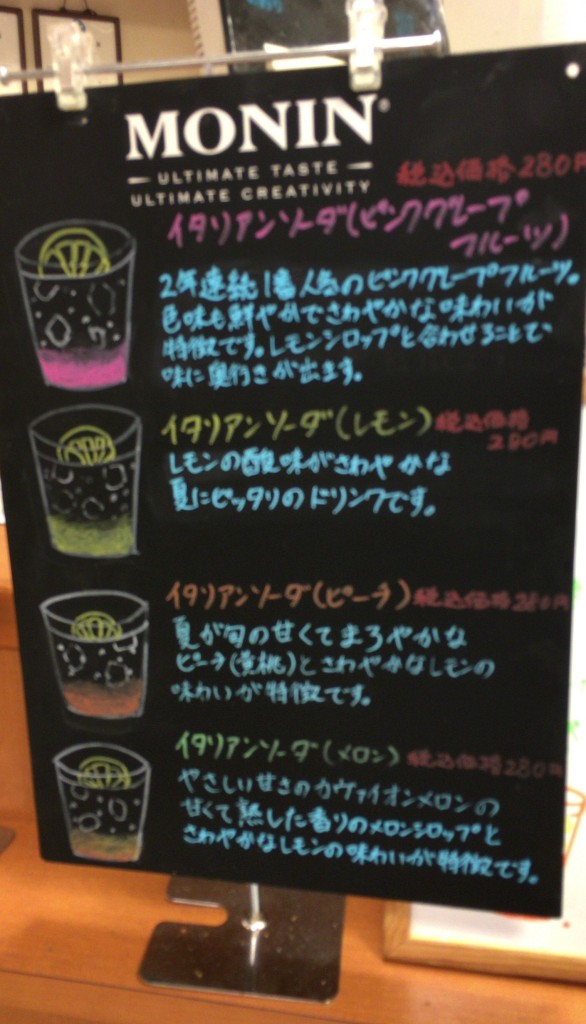 MONIN
ULTIMATE TASTE
ULTIMATE CREATIVITY
税込価格280円
イタリアンソーダ(ピンクグレープ
フルーツ)
2年連続1番人気のピンクグレープフルーツ。
色味も鮮やかでさわやかな味わいが
特徴です。レモンシロップと合わせることで、
味に奥行きが出ます。
イタリアンソーダ(レモン)税込価格
280円
レモンの酸味がさわやかな
夏にピッタリのドリンクです。
イタリアンソーダ(ピーチ)税込価格280円
夏が旬の甘くてまろやかな
ピーチ(黄桃)とさわやかなレモンの
味わいが特徴です。
イタリアンソーダ(メロン)税込価格280円
やさしい甘さのカヴァイオンメロンの
甘くて熟した香りのメロンシロップと
さわやかなレモンの味わいが特徴です。